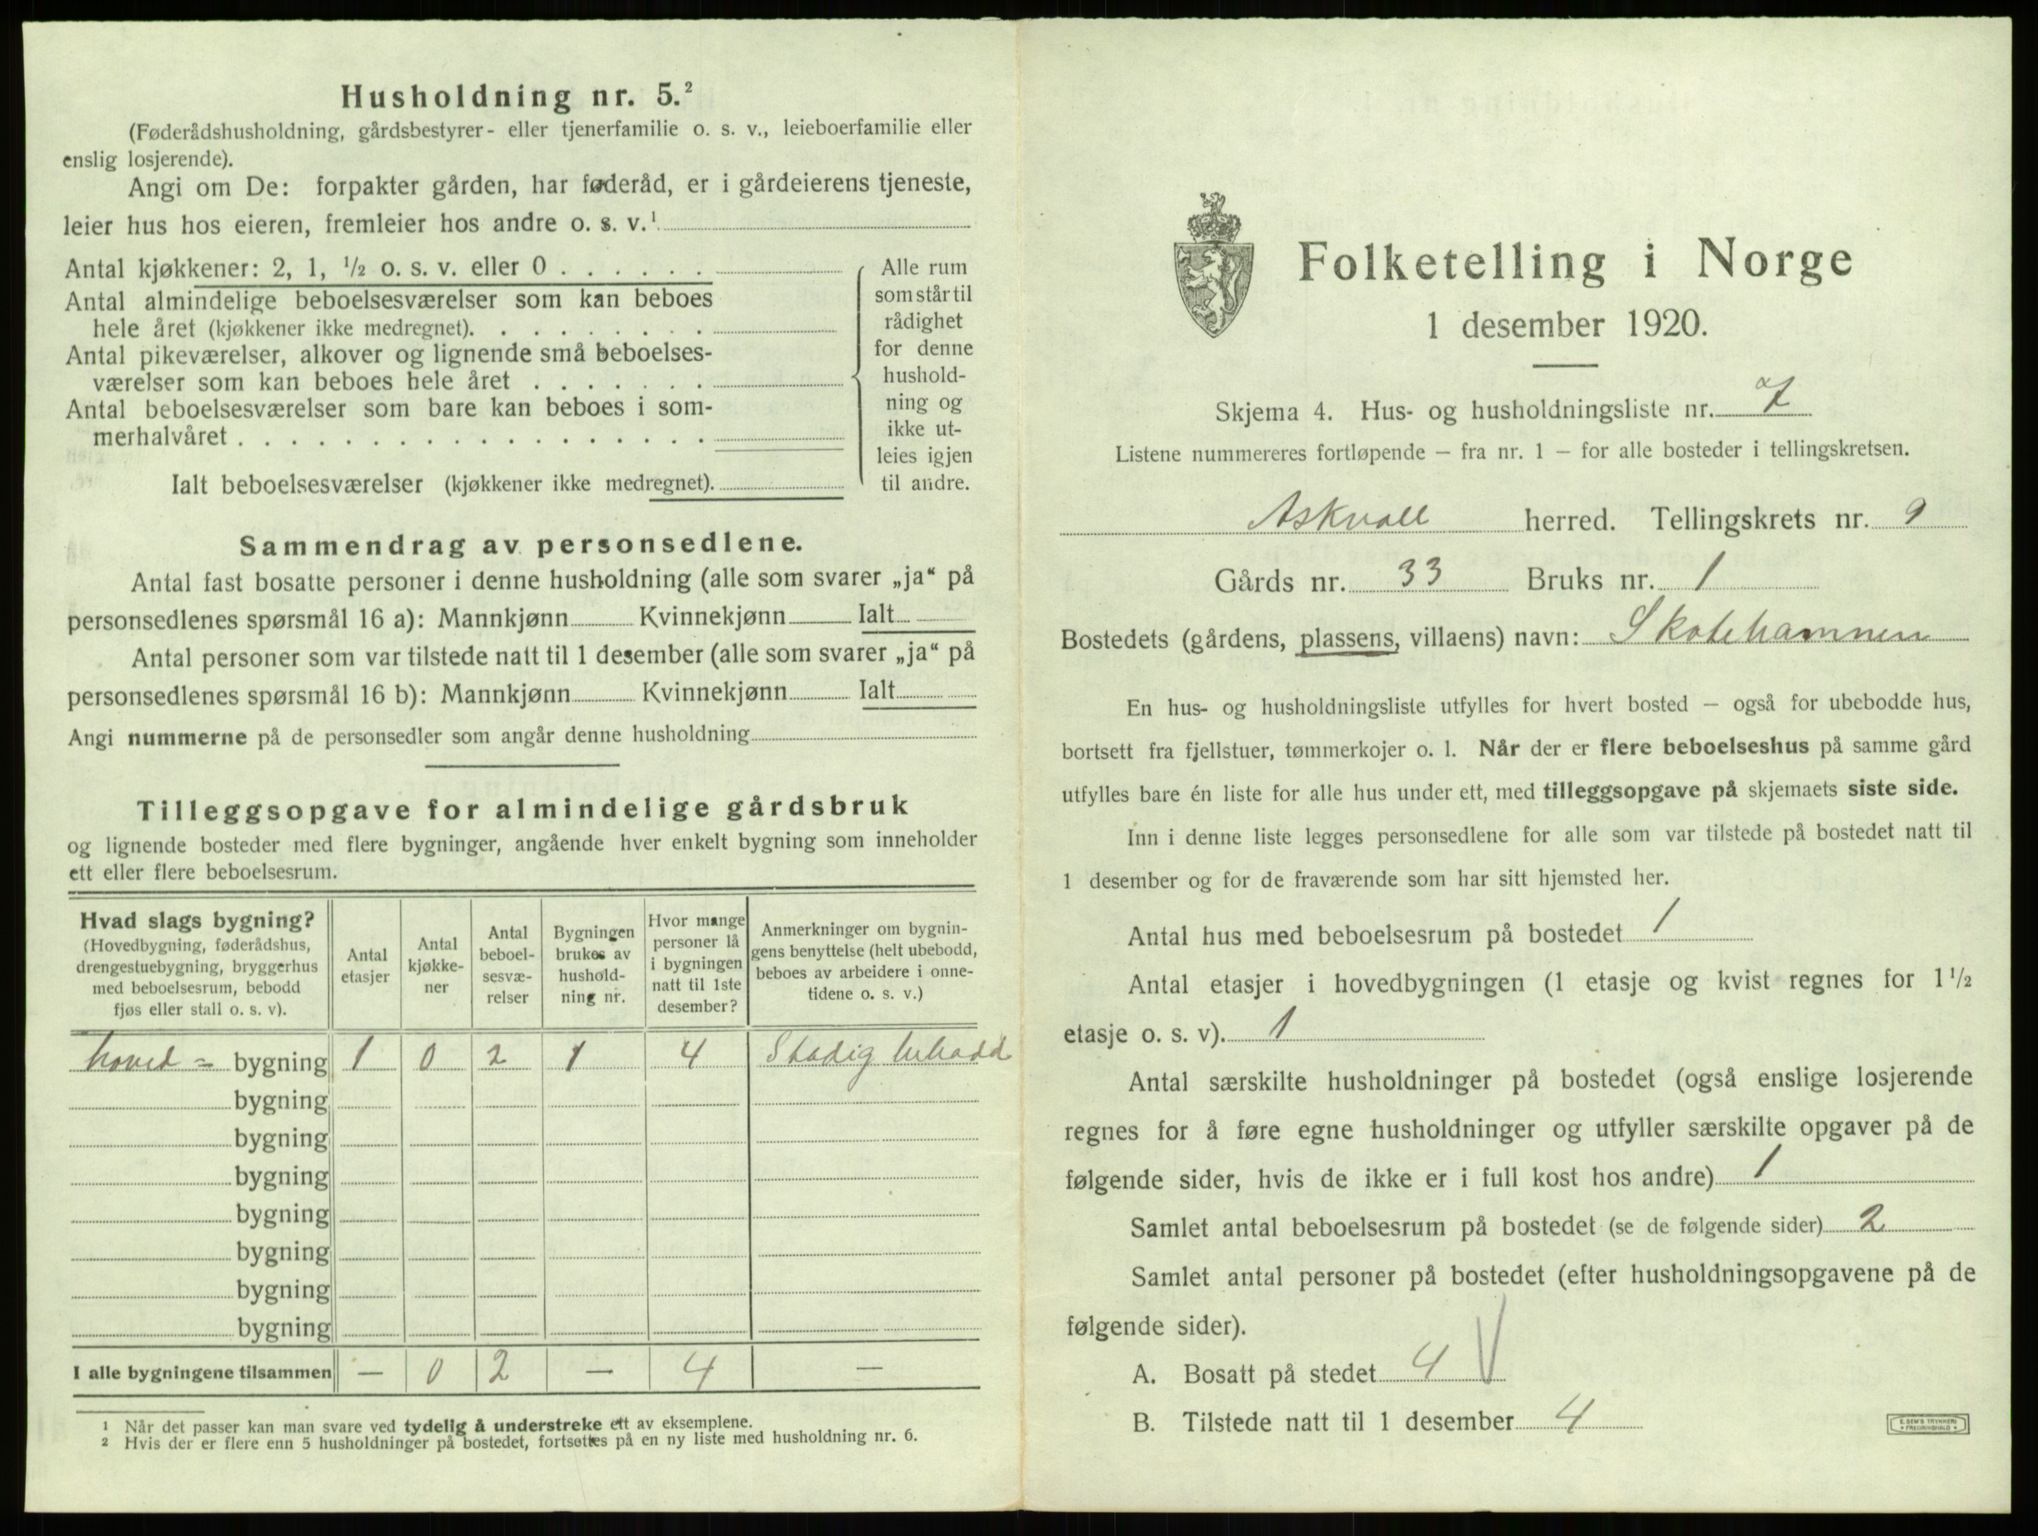 Husholdning nr. 5.²
(Føderådshusholdning, gårdsbestyrer- eller tjenerfamilie o. s. v., leieboerfamilie eller
enslig losjerende).
Angi om De: forpakter gården, har føderåd, er i gårdeierens tjeneste,
leier hus hos eieren, fremleier hos andre o. s. v.¹
Antal kjøkkener: 2, 1, ½ o. s. v. eller 0 . . . . . .
Antal almindelige beboelsesværelser som kan beboes
hele året (kjøkkener ikke medregnet). . . . . . . . .
Antal pikeværelser, alkover og lignende små beboelses-
værelser som kan beboes hele året . . . . . . .
Antal beboelsesværelser som bare kan beboes i som-
merhalvåret . . . . . . . . . . . . . . . . . .
Ialt beboelsesværelser (kjøkkener ikke medregnet).
Alle rum
som står til
rådighet
for denne
hushold-
ning og
ikke ut-
leies igjen
til andre.
Sammendrag av personsedlene.
Antal fast bosatte personer i denne husholdning (alle som svarer „ja“ på
personsedlenes spørsmål 16 a): Mannkjønn Kvinnekjønn Ialt
Antal personer som var tilstede natt til 1 desember (alle som svarer „ja“ på
personsedlenes spørsmål 16 b): Mannkjønn Kvinnekjønn Ialt
Angi nummerne på de personsedler som angår denne husholdning
Tilleggsopgave for almindelige gårdsbruk
og lignende bosteder med flere bygninger, angående hver enkelt bygning som inneholder
ett eller flere beboelsesrum.
Hvad slags bygning?
(Hovedbygning, føderådshus,
drengestuebygning, bryggerhus
med beboelsesrum, bebodd
fjøs eller stall o. s. v).
Antal
etasjer
Antal
kjøkke-
ner
Antal
beboel-
sesvæ-
relser
Bygningen
brukes av
hushold-
ning nr.
Hvor mange
personer lå
i bygningen
natt til 1ste
desember?
Anmerkninger om bygnin-
gens benyttelse (helt ubebodd,
beboes av arbeidere i onne-
tidene o. s. v.)
hoved = bygning 1 0 2 1 4 Stadig bebodd
bygning
bygning
bygning
bygning
bygning
bygning
bygning
I alle bygningene tilsammen — 0 2 — 4 —
¹ Når det passer kan man svare ved tydelig å understreke ett av eksemplene.
² Hvis der er flere enn 5 husholdninger på bostedet, fortsettes på en ny liste med husholdning nr. 6.
Folketelling i Norge
1 desember 1920.
Skjema 4. Hus- og husholdningsliste nr. 7
Listene nummereres fortløpende – fra nr. 1 – for alle bosteder i tellingskretsen.
Askvoll herred. Tellingskrets nr. 9
Gårds nr. 33 Bruks nr. 1
Bostedets (gårdens, plassens, villaens) navn: Skatehamnen
En hus- og husholdningsliste utfylles for hvert bosted – også for ubebodde hus,
bortsett fra fjellstuer, tømmerkojer o. l. Når der er flere beboelseshus på samme gård
utfylles bare én liste for alle hus under ett, med tilleggsopgave på skjemaets siste side.
Inn i denne liste legges personsedlene for alle som var tilstede på bostedet natt til
1 desember og for de fraværende som har sitt hjemsted her.
Antal hus med beboelsesrum på bostedet 1
Antal etasjer i hovedbygningen (1 etasje og kvist regnes for 1½
etasje o. s. v). 1
Antal særskilte husholdninger på bostedet (også enslige losjerende
regnes for å føre egne husholdninger og utfyller særskilte opgaver på de
følgende sider, hvis de ikke er i full kost hos andre) 1
Samlet antal beboelsesrum på bostedet (se de følgende sider) 2
Samlet antal personer på bostedet (efter husholdningsopgavene på de
følgende sider).
A. Bosatt på stedet 4 V
B. Tilstede natt til 1 desember 4